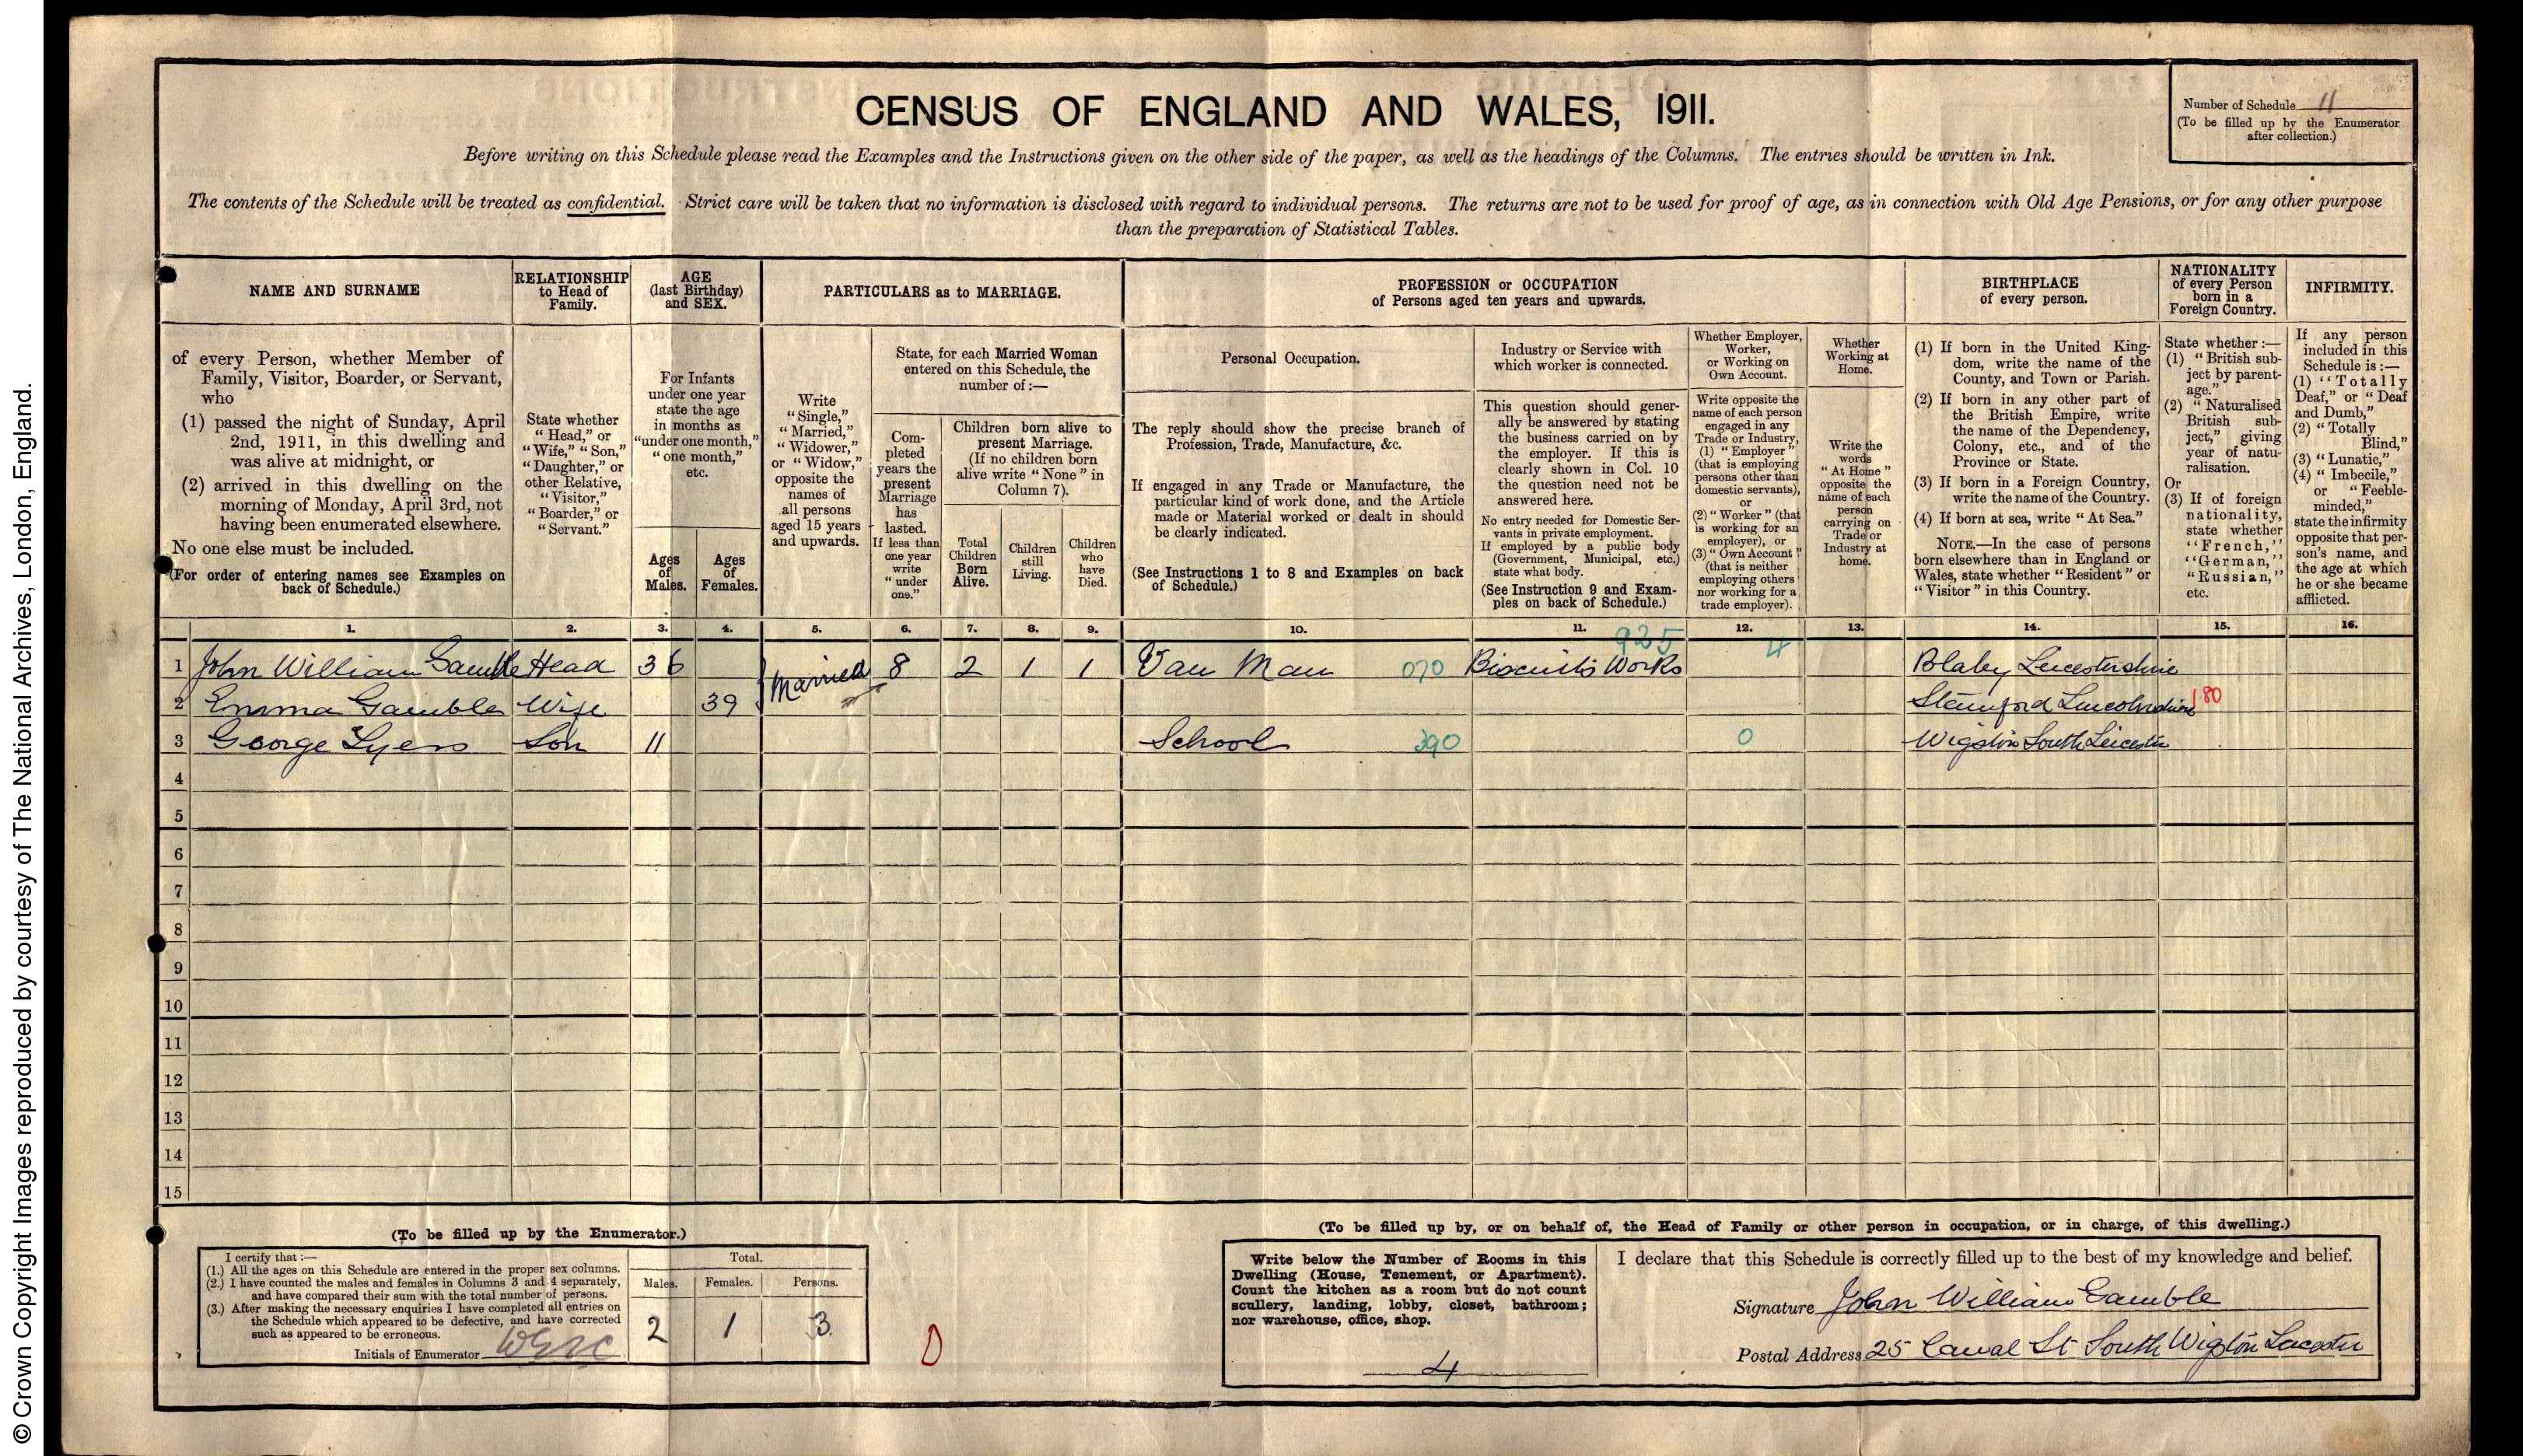 © Crown Copyright Images reproduced by courtesy of The National Archives, London, England.
CENSUS OF ENGLAND AND WALES, 1911.
Number of Schedule 11
(To be filled up by the Enumerator
after collection.)
Before writing on this Schedule please read the Examples and the Instructions given on the other side of the paper, as well as the headings of the Columns. The entries should be written in Ink.
The contents of the Schedule will be treated as confidential. Strict care will be taken that no information is disclosed with regard to individual persons. The returns are not to be used for proof of age, as in connection with Old Age Pensions, or for any other purpose
than the preparation of Statistical Tables.
NAME AND SURNAME
of every Person, whether Member of
Family, Visitor, Boarder, or Servant,
who
(1) passed the night of Sunday, April
2nd, 1911, in this dwelling and
was alive at midnight, or
(2) arrived in this dwelling on the
morning of Monday, April 3rd, not
having been enumerated elsewhere.
No one else must be included.
(For order of entering names see Examples on
back of Schedule.)
RELATIONSHIP
to Head of
Family.
State whether
"Head," or
"Wife," "Son,"
"Daughter," or
other Relative,
"Visitor,"
"Boarder," or
"Servant."
AGE
(last Birthday)
and SEX.
For Infants
under one year
state the age
in months as
"under one month,"
"one month,"
etc.
Ages
of
Males.
Ages
of
Females.
PARTICULARS as to MARRIAGE.
Write
"Single,"
"Married,"
"Widower,"
or "Widow,"
opposite the
names of
all persons
aged 15 years
and upwards.
State, for each Married Woman
entered on this Schedule, the
number of:—
Com-
pleted
years the
present
Marriage
has
lasted.
If less than
one year
write
"under
one."
Children born alive to
present Marriage.
(If no children born
alive write "None" in
Column 7).
Total
Children
Born
Alive.
Children
still
Living.
Children
who
have
Died.
PROFESSION or OCCUPATION
of Persons aged ten years and upwards.
Personal Occupation.
The reply should show the precise branch of
Profession, Trade, Manufacture, &c.
If engaged in any Trade or Manufacture, the
particular kind of work done, and the Article
made or Material worked or dealt in should
be clearly indicated.
(See Instructions 1 to 8 and Examples on back
of Schedule.)
Industry or Service with
which worker is connected.
This question should gener-
ally be answered by stating
the business carried on by
the employer. If this is
clearly shown in Col. 10
the question need not be
answered here.
No entry needed for Domestic Ser-
vants in private employment.
If employed by a public body
(Government, Municipal, etc.)
state what body.
(See Instruction 9 and Exam-
ples on back of Schedule.)
Whether Employer,
Worker,
or Working on
Own Account.
Write opposite the
name of each person
engaged in any
Trade or Industry,
(1) "Employer"
(that is employing
persons other than
domestic servants),
or
(2) "Worker" (that
is working for an
employer), or
(3) "Own Account"
(that is neither
employing others
nor working for a
trade employer).
Whether
Working at
Home.
Write the
words
"At Home"
opposite the
name of each
person
carrying on
Trade or
Industry at
home.
BIRTHPLACE
of every person.
(1) If born in the United King-
dom, write the name of the
County, and Town or Parish.
(2) If born in any other part of
the British Empire, write
the name of the Dependency,
Colony, etc., and of the
Province or State.
(3) If born in a Foreign Country,
write the name of the Country.
(4) If born at sea, write "At Sea."
NOTE.—In the case of persons
born elsewhere than in England or
Wales, state whether "Resident" or
"Visitor" in this Country.
NATIONALITY
of every Person
born in a
Foreign Country.
State whether:—
(1) "British sub-
ject by parent-
age."
(2) "Naturalised
British sub-
ject," giving
year of natu-
ralisation.
Or
(3) If of foreign
nationality,
state whether
"French,"
"German,"
"Russian,"
etc.
INFIRMITY.
If any person
included in this
Schedule is:—
(1) "Totally
Deaf," or "Deaf
and Dumb,"
(2) "Totally
Blind,"
(3) "Lunatic,"
(4) "Imbecile,"
or "Feeble-
minded,"
state the infirmity
opposite that per-
son's name, and
the age at which
he or she became
afflicted.
1. 2. 3. 4. 5. 6. 7. 8. 9. 10. 11. 12. 13. 14. 15. 16.
925 4
1 John William Gamble Head 36 Married 8 2 1 1 Van Man 070 Biscuits Works Blaby Leicestershire
2 Emma Gamble Wife 39 Stamford Lincolnshire 180
3 George Lyers Son 11 School 390 0 Wigston South Leicester
4
5
6
7
8
9
10
11
12
13
14
15
(To be filled up by the Enumerator.)
I certify that:—
(1.) All the ages on this Schedule are entered in the proper sex columns.
(2.) I have counted the males and females in Columns 3 and 4 separately,
and have compared their sum with the total number of persons.
(3.) After making the necessary enquiries I have completed all entries on
the Schedule which appeared to be defective, and have corrected
such as appeared to be erroneous.
Initials of Enumerator
Total.
Males. Females. Persons.
2 1 3
(To be filled up by, or on behalf of, the Head of Family or other person in occupation, or in charge, of this dwelling.)
Write below the Number of Rooms in this
Dwelling (House, Tenement, or Apartment).
Count the kitchen as a room but do not count
scullery, landing, lobby, closet, bathroom;
nor warehouse, office, shop.
4
I declare that this Schedule is correctly filled up to the best of my knowledge and belief.
Signature John William Gamble
Postal Address 25 Canal St South Wigston Leicester